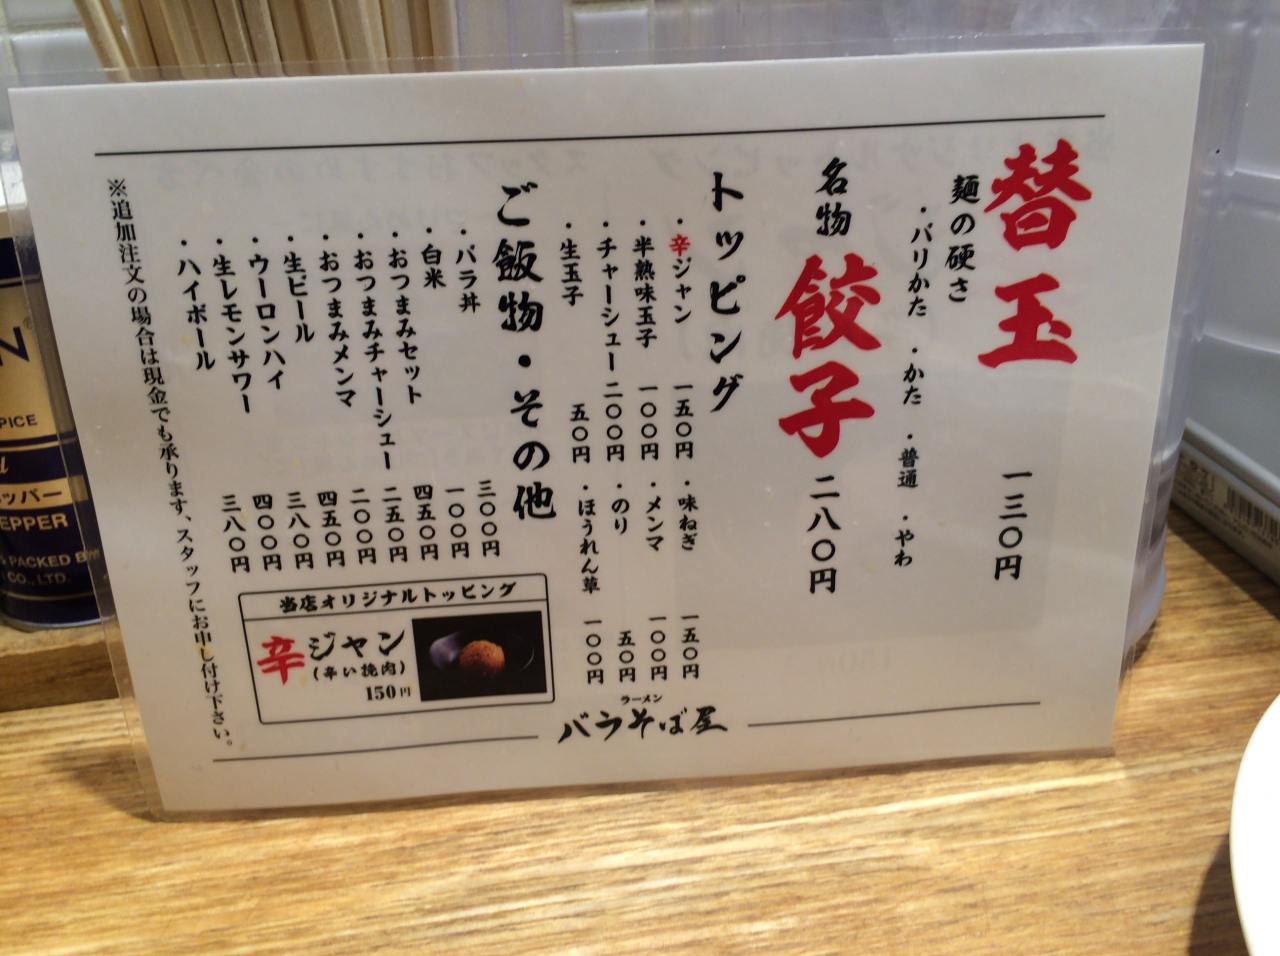 替玉 一三〇円
麺の硬さ
・バリかた ・かた ・普通 ・やわ
名物 餃子 二八〇円
トッピング
・辛ジャン 一五〇円
・半熟味玉子 一〇〇円
・チャーシュー 二〇〇円
・生玉子 五〇円
・味ねぎ 一五〇円
・メンマ 一〇〇円
・のり 五〇円
・ほうれん草 一〇〇円
ご飯物・その他
・バラ丼 三〇〇円
・白米 一〇〇円
・おつまみセット 四五〇円
・おつまみチャーシュー 二五〇円
・おつまみメンマ 二〇〇円
・生ビール 四五〇円
・ウーロンハイ 三八〇円
・生レモンサワー 四〇〇円
・ハイボール 三八〇円
※追加注文の場合は現金でも承ります、スタッフにお申し付け下さい。
当店オリジナルトッピング
辛ジャン
(辛い挽肉)
150円
ラーメン
バラそば屋
N®
PICE
ッパー
EPPER
PACKED B
CO., LTD.